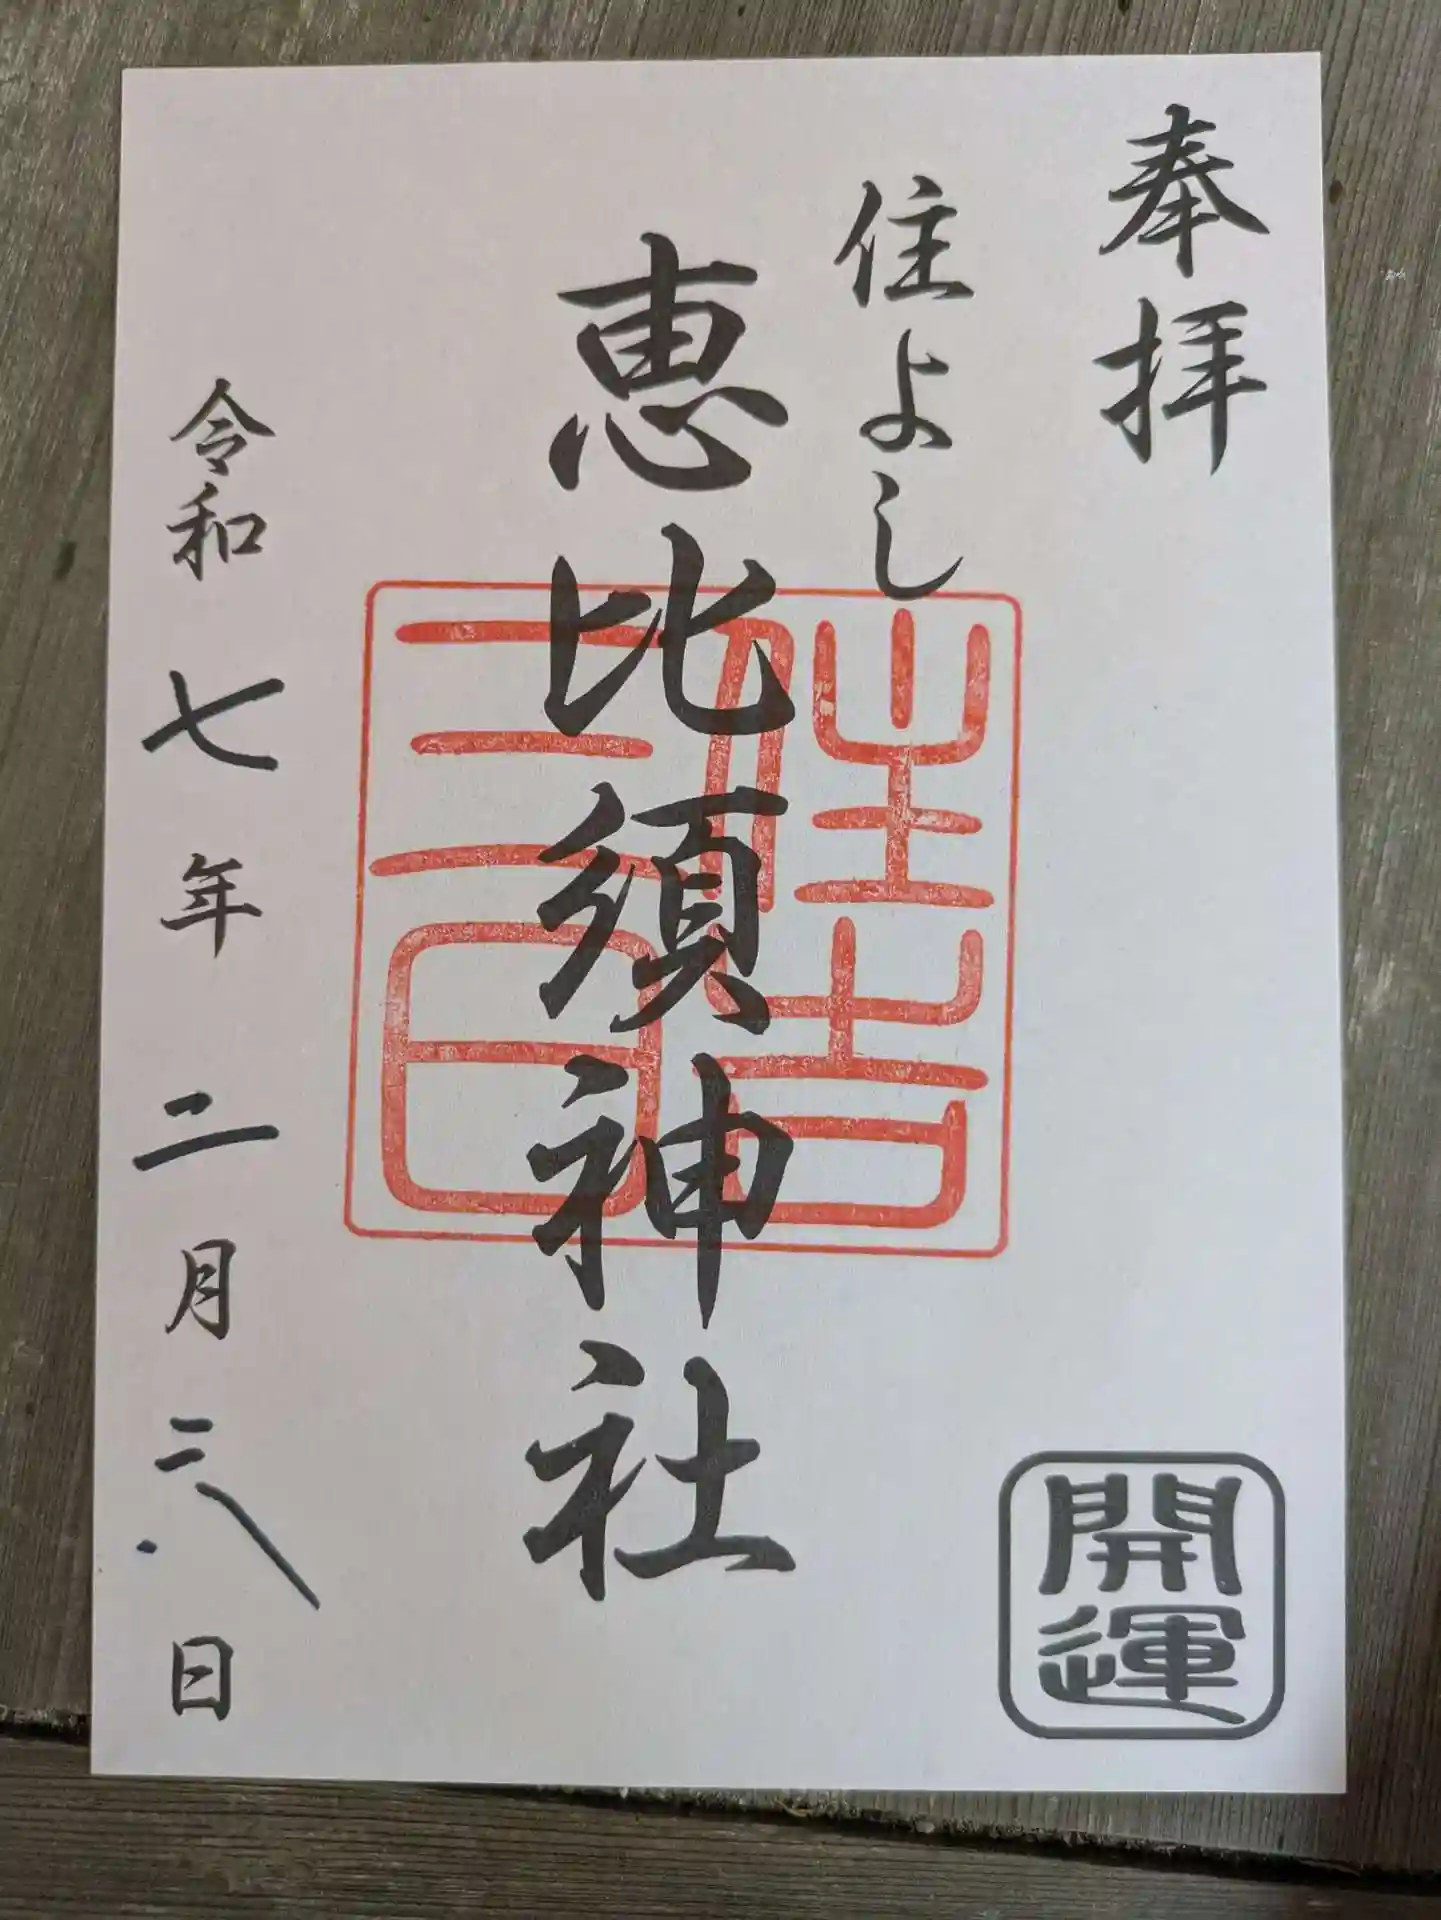 奉拝
開運
住よし
恵比須神社
住吉
三日
令和七年二月二八日